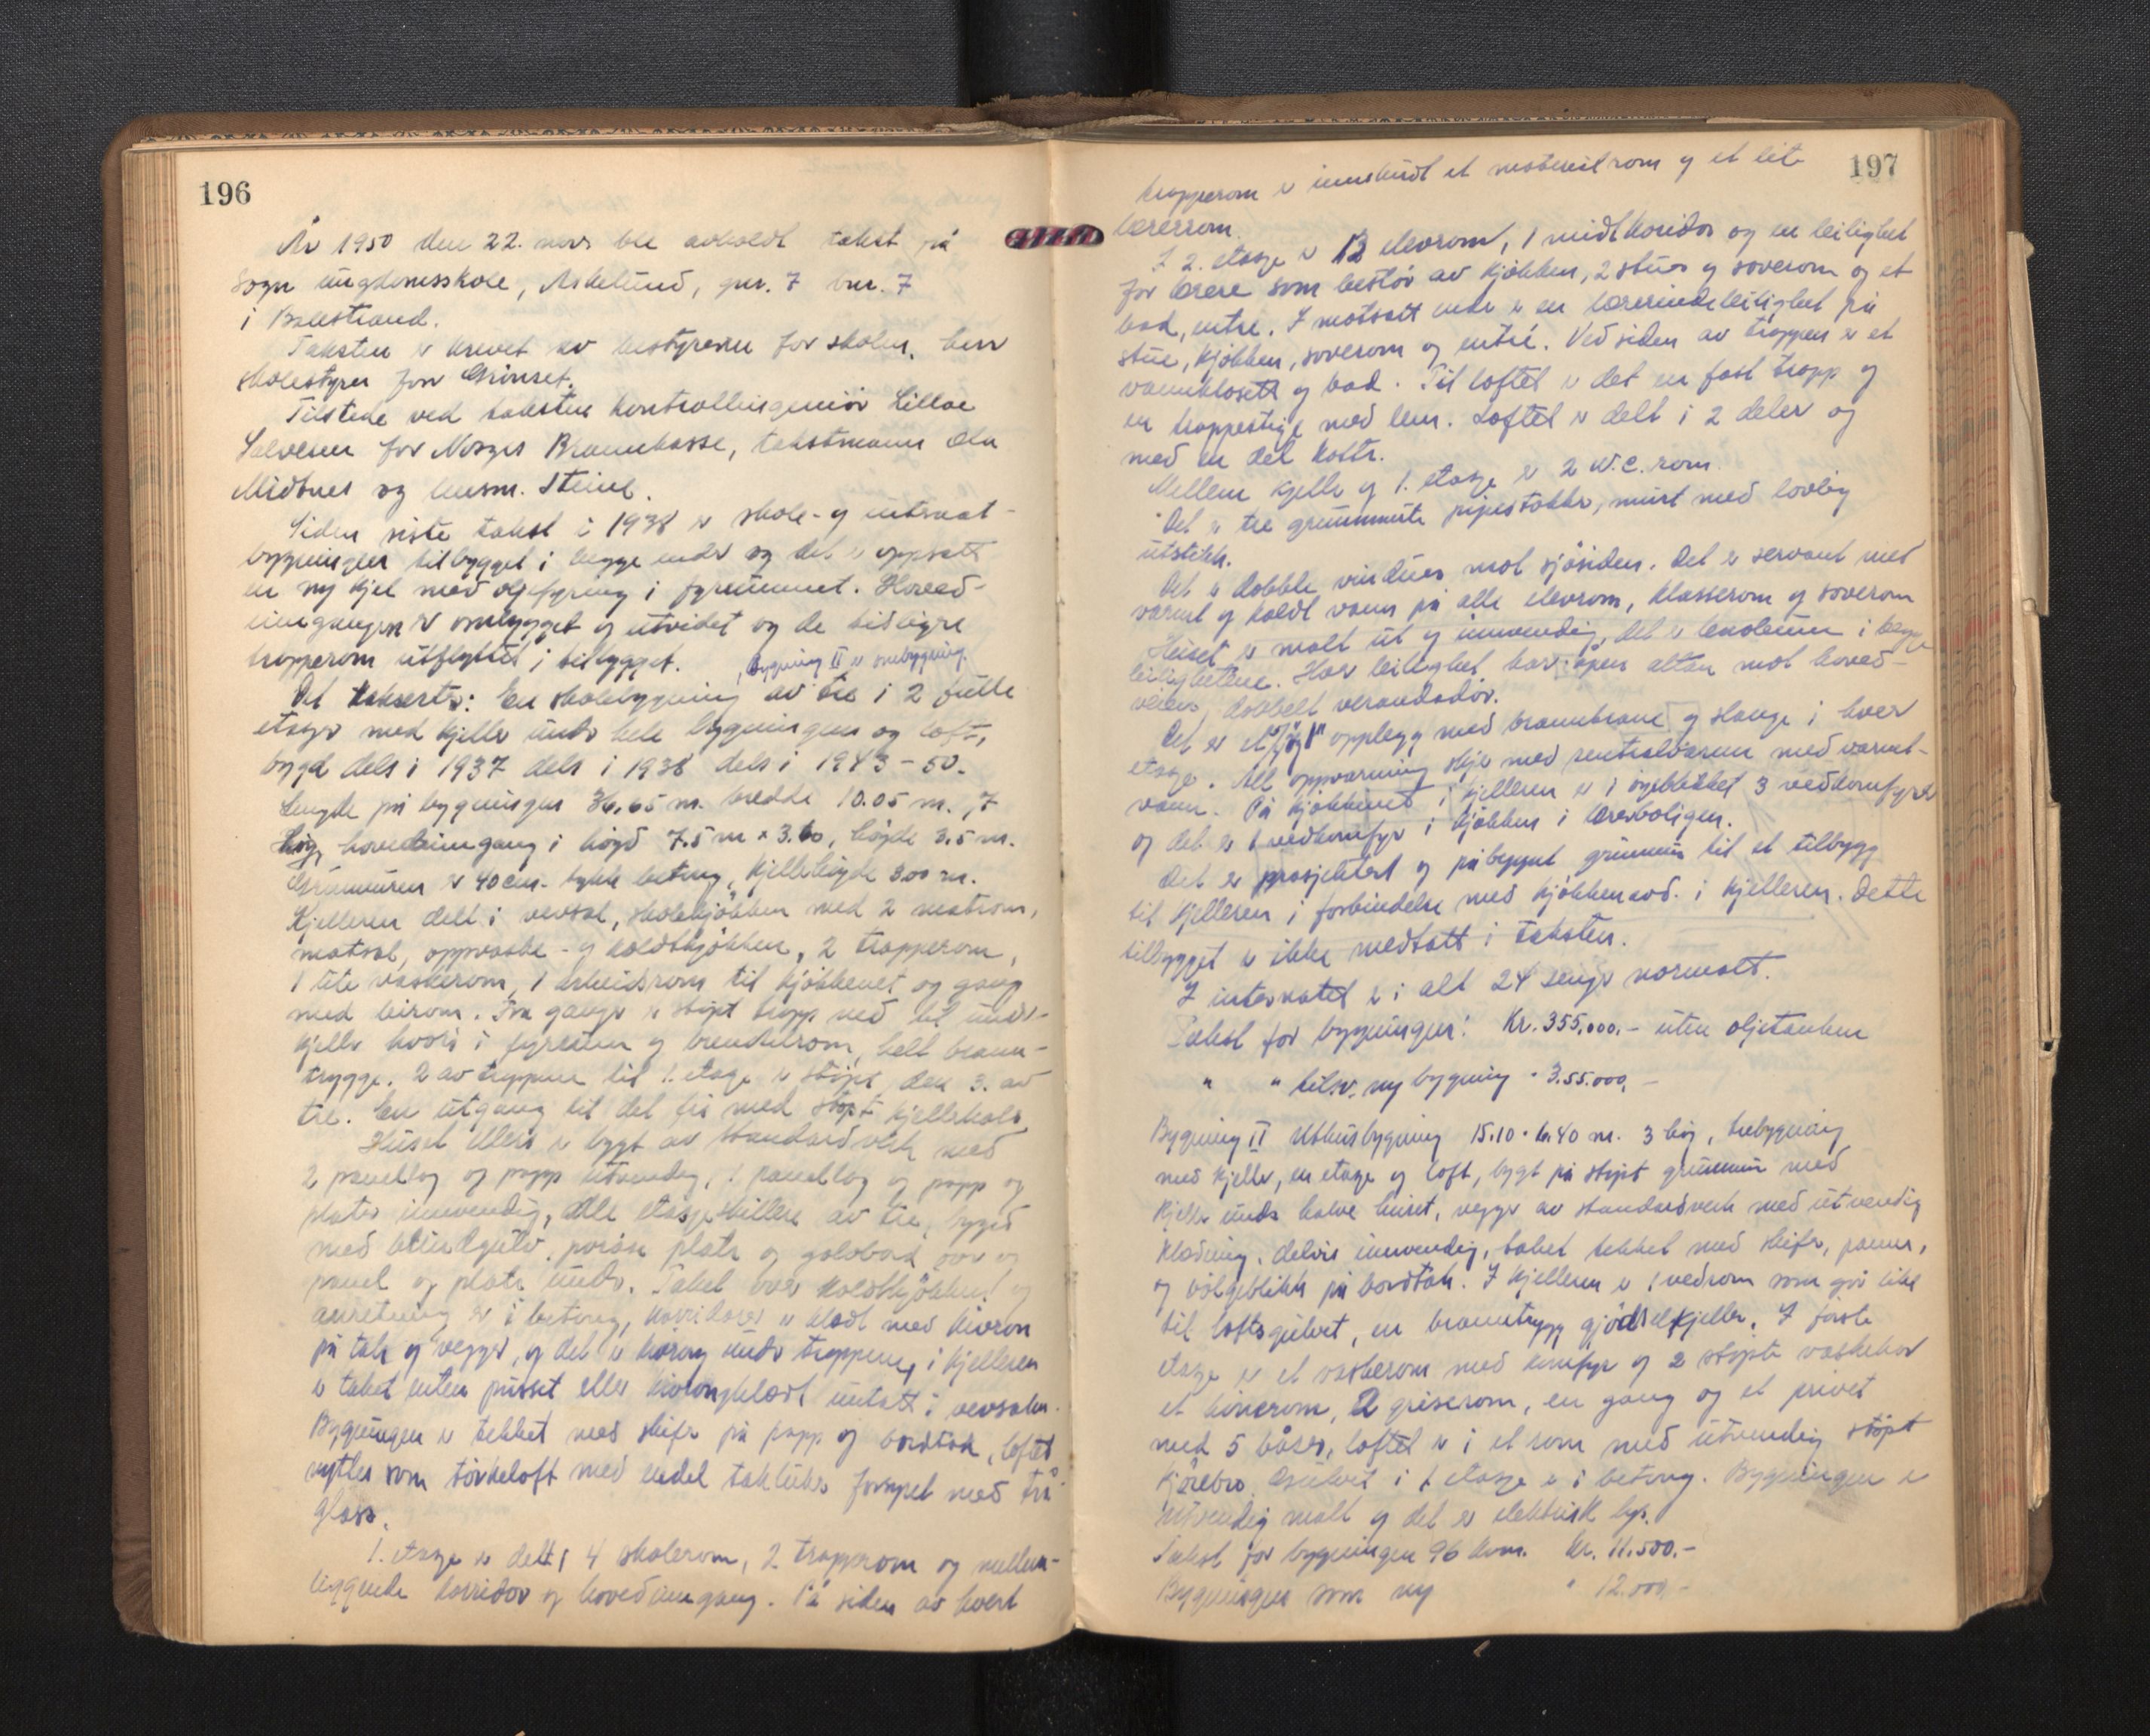 196
År 1950 den 22. novr ble avholdt takst på
Sogn ungdomsskole, Askelund, gnr. 7 bnr. 7
i Balestrand.
Taksten er krevet av bestyreren for skolen, herr
skolestyrer Grinset.
Tilstede ved taksten kontrollingeniør Lilloe
Salvesen for Norges Brannkasse, takstmann Ola
Midtnes og lensm. Steine.
Siden siste takst i 1938 er skole- og internat-
bygningen tilbygget i begge ender og det er oppsatt
en ny kjel med oljefyring i fyrrummet. Hoved-
inngangen er ombygget og utvidet og de tidligre
trapperom utflyttet i tilbygget. Bygning II er ombygning.
Det takserts: En skolebygning av tre i 2 fulle
etasjer med kjeller under hele bygningen og loft,
bygd dels i 1937 dels i 1938 dels i 1943-50.
Lengde på bygningen 36.65 m. bredde 10.05 m. 7
høg, hovedinngang i høgd 7.5 m x 3.60, høgde 3.5 m.
Grunnmuren er 40 cm. tykk betong, kjellerhøgde 3.00 m.
Kjelleren delt i vevsal, skolekjøkken med 2 matrom,
matsal, oppvaske- og koldtkjøkken, 2 trapperom,
1 lite vaskerom, 1 arbeidsrom til kjøkkenet og gang
med birom. Fra gangen er støpt trapp ned til under-
kjeller hvori fyrrum og brendselrom, helt brann-
trygge. 2 av trappene til 1. etasje er støpt, den 3. av
tre. En utgang til det fri med støpt kjellerhals
Huset ellers er bygt av standardverk med
2 panellag og papp utvendig, 1 panellag og papp og
plater innvendig, alle etasjeskillere av tre, bygd
med blindgulv, porøse plater og golvbord over og
panel og plater under. Taket over koldtkjøkken og
anretning er i betong, korridorer er kledt med huron
på tak og vegger, og det er huron under trappene, i kjelleren
er taket enten pusset eller huronkledt untatt i vevsalen.
Bygningen er tekket med skifer på papp og bordtak, loftet
nyttes som tørkeloft med endel takluker forsynt med trå
glass.
1. etasje er delt i 4 skolerom, 2 trapperom og mellem-
liggende korridor og hovedinngang. På siden av hvert
197
trapperom er innskudt et materielrom og et lite
lærerrom.
I 2. etasje er 12 elevrom, 1 midtkoridor og en leilighet
for lærere som består av kjøkken, 2 stuer og soverom og et
bad, entre. I motsatt ende er en lærerindeleilighet på
stue, kjøkken, soverom og entré. Ved siden av trappen er et
vannklosett og bad. Til loftet er det en fast trapp og
en trappestige med lem. Loftet er delt i 2 deler og
med en del kott.
Mellem kjeller og 1. etasje er 2 W.C. rom.
Det er tre grunnmurte pipestokker, murt med lovlig
utstikk.
Det er dobble vinduer mot sjøsiden. Det er servant med
varmt og koldt vann på alle elevrom, klasserom og soverom
Huset er malt ut og innvendig, det er linoleum i begge
leilighetene. Hver leilighet har åpen altan mot hoved-
veien, dobbelt verandadør.
Det er et opplegg med brannkrane og slange i hver
etasje. All oppvarming skjer med sentralvarme med varmt-
vann. På kjøkkenet i kjelleren er i øieblikket 3 vedkomfyrer
og det er 1 vedkomfyr i kjøkken i lærerboligen.
Det er prosjektert og påbegynt grunnmur til et tilbygg
til kjelleren i forbindelse med kjøkkenavd. i kjelleren. Dette
tilbygget er ikke medtatt i taksten.
I internatet er i alt 24 senger normalt.
Takst for bygningen: Kr. 355.000.- uten oljetanken
" " tilsv. ny bygning " 355.000.-
Bygning II Uthusbygning 15.10 · 6.40 m. 3 høg, trebygning
med kjeller, en etasje og loft, bygt på støpt grunnmur med
kjeller under halve huset, vegger av standardverk med utvendig
kledning, delvis innvendig, taket tekket med skifer, panner,
og bølgeblikk på bordtak. I kjelleren er 1 vedrom som går like
til loftsgulvet, en branntrygg gjødselkjeller. I første
etasje er et vaskerom med komfyr og 2 støpte vaskekar
et hønerom, 2 griserom, en gang og et privet
med 5 båser, loftet er i et rom med utvendig støpt
kjørebro. Gulvet i 1 etasje er i betong. Bygningen er
utvendig malt og det er elektrisk lys.
Takst for bygningen 96 kvm. kr. 11.500.-
Bygningen som ny " 12.000.-